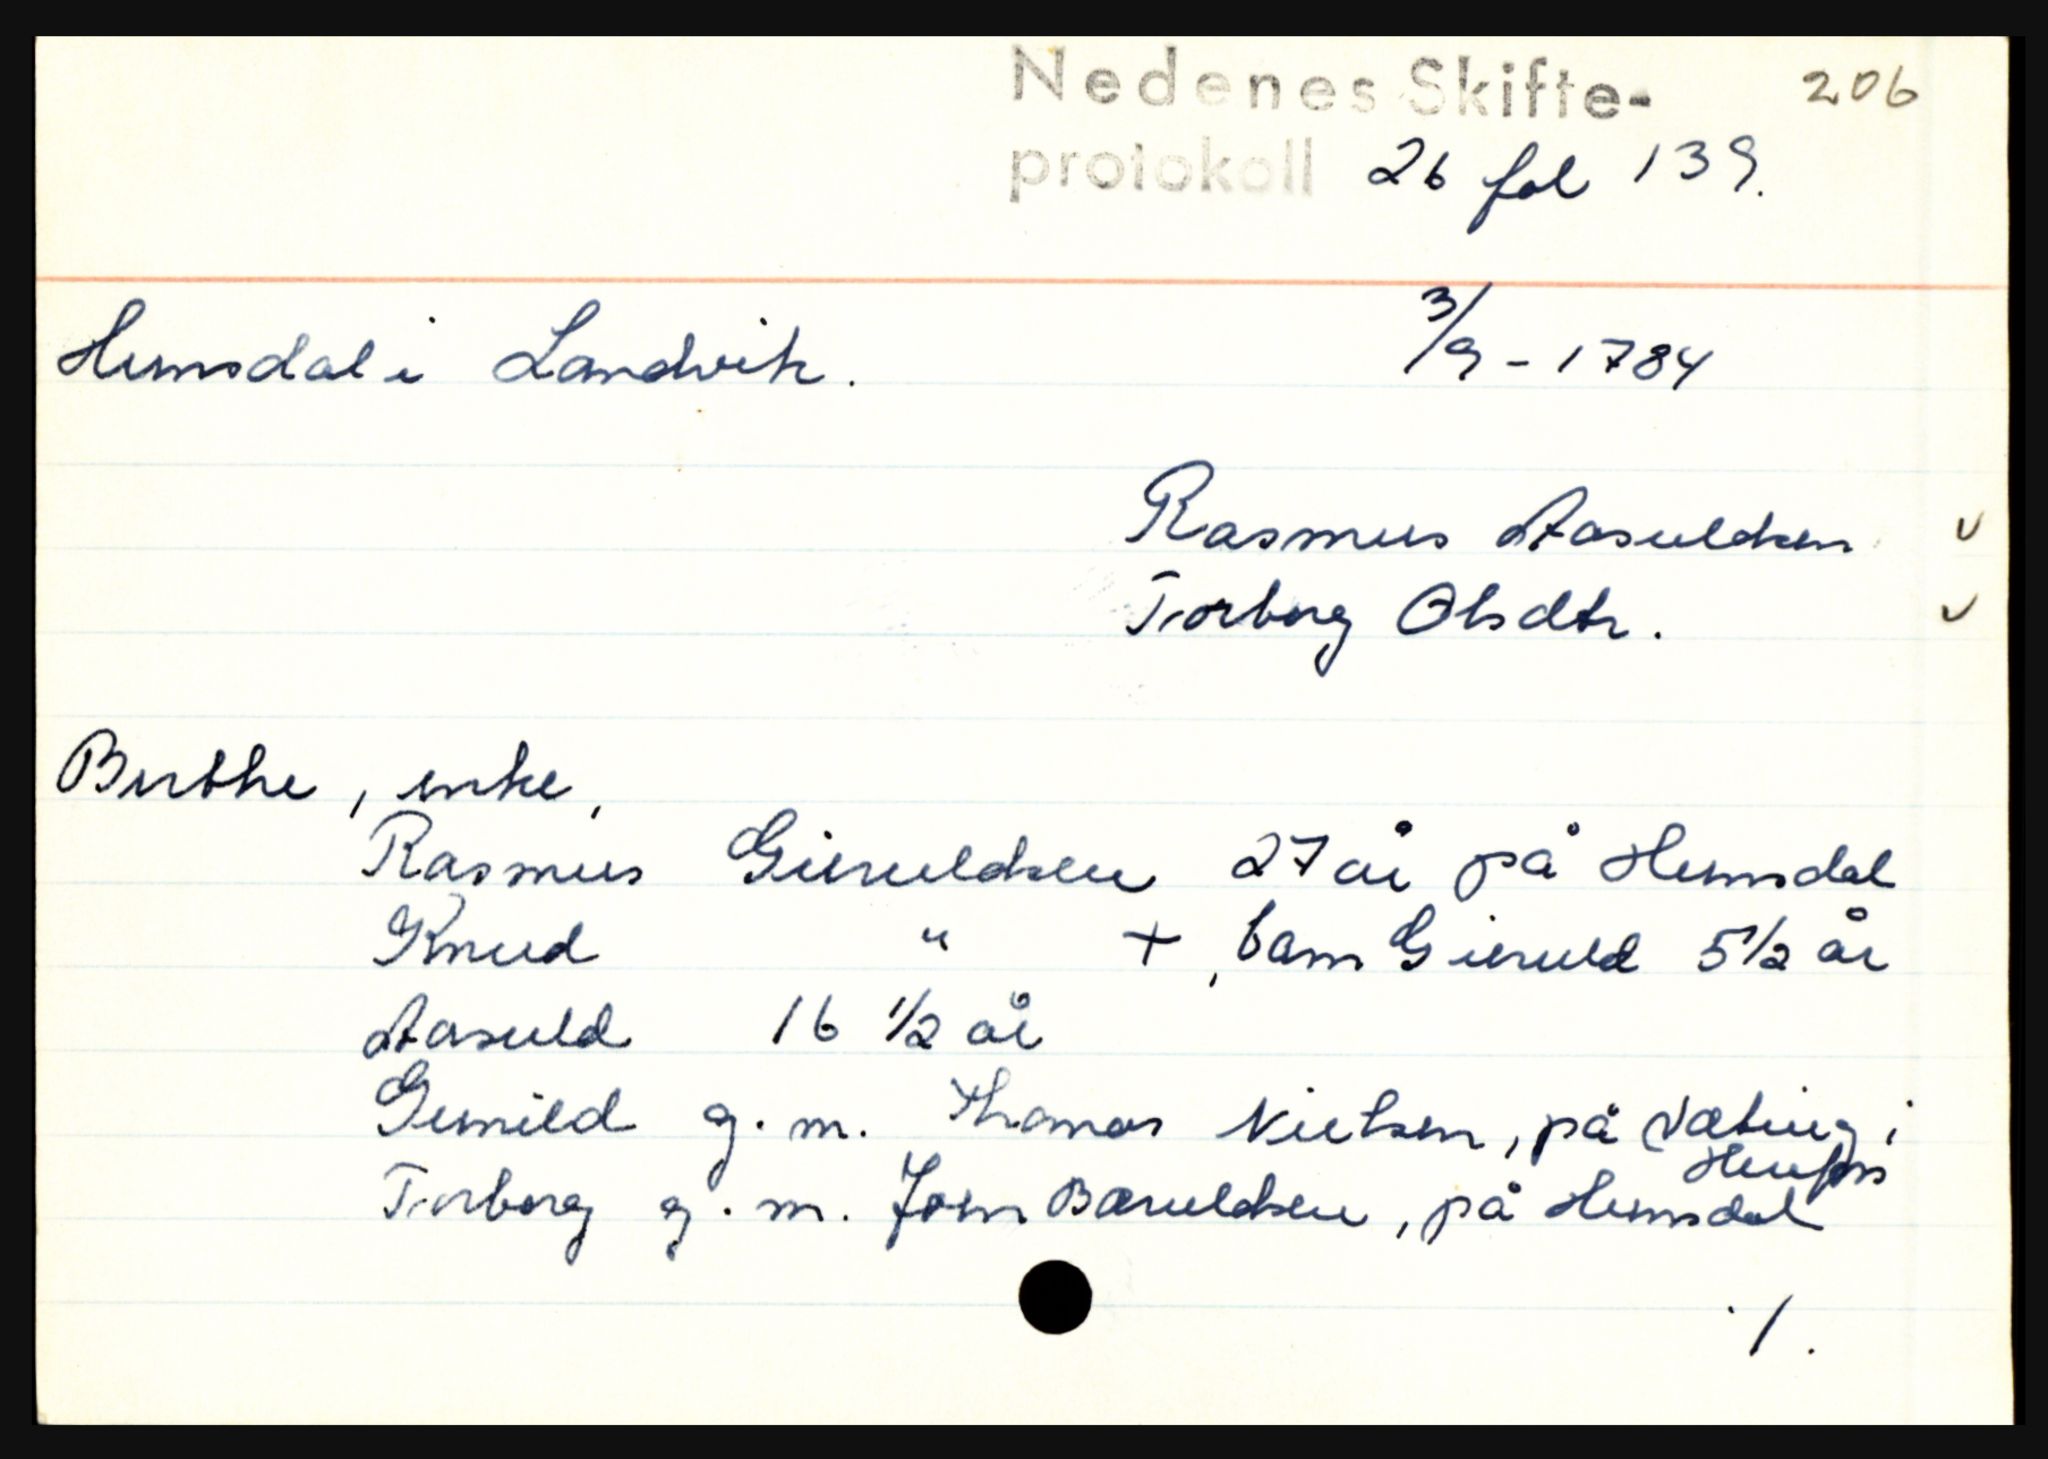 Nedenes Skifte- 206
protokoll 26 fol 139.
Humsdal i Landvik. 3/9 - 1784
Rasmus Aasuldsen v
Torborg Olsdtr. v
Birthe, enke,
Rasmus Gieruldsen 27 år på Humsdal
Knud " +, barn Gieruld 5 1/2 år
Aasuld 16 1/2 år
Gunild g. m. Thomas Nielsen, på Væting i
Torborg g. m. Jørn Bæruldsen, på Humsdal
./.